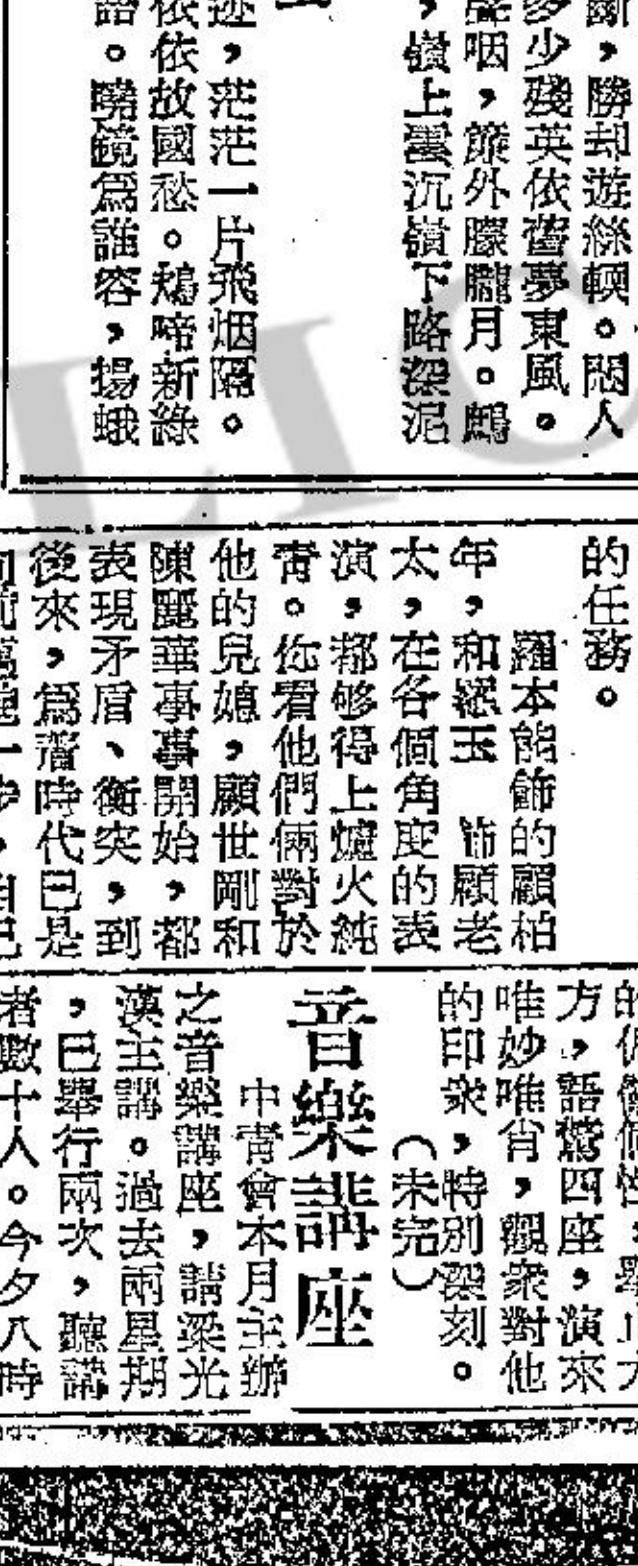 斷，勝却遊絲輭。悶人
多少殘英依舊夢東風。
聲咽，簾外朦朧月。鷓
，嶺上雲沉嶺下路深泥
迹，茫茫一片飛烟隔。
依依故國愁。鵡啼新綠
語。曉鏡爲誰容，揚蛾
的任務。
羅本能飾的顧柏
年，和綛玉 飾顧老
太，在各個角度的表
演，都够得上爐火純
靑。你看他們倆對於
他的兒媳，顧世剛和
陳麗華事事開始，都
表現矛盾、衡突，到
後來，爲着時代已是
向前邁進一步，自己
方，語驚四座，演來
唯妙唯肖，觀衆對他
的印衆，特別深刻。
（未完）
音樂講座
中靑會本月主辦
之音樂講座，請梁光
漢主講。過去兩星期
，已舉行兩次，聽講
者數十人。今夕八時
LIC